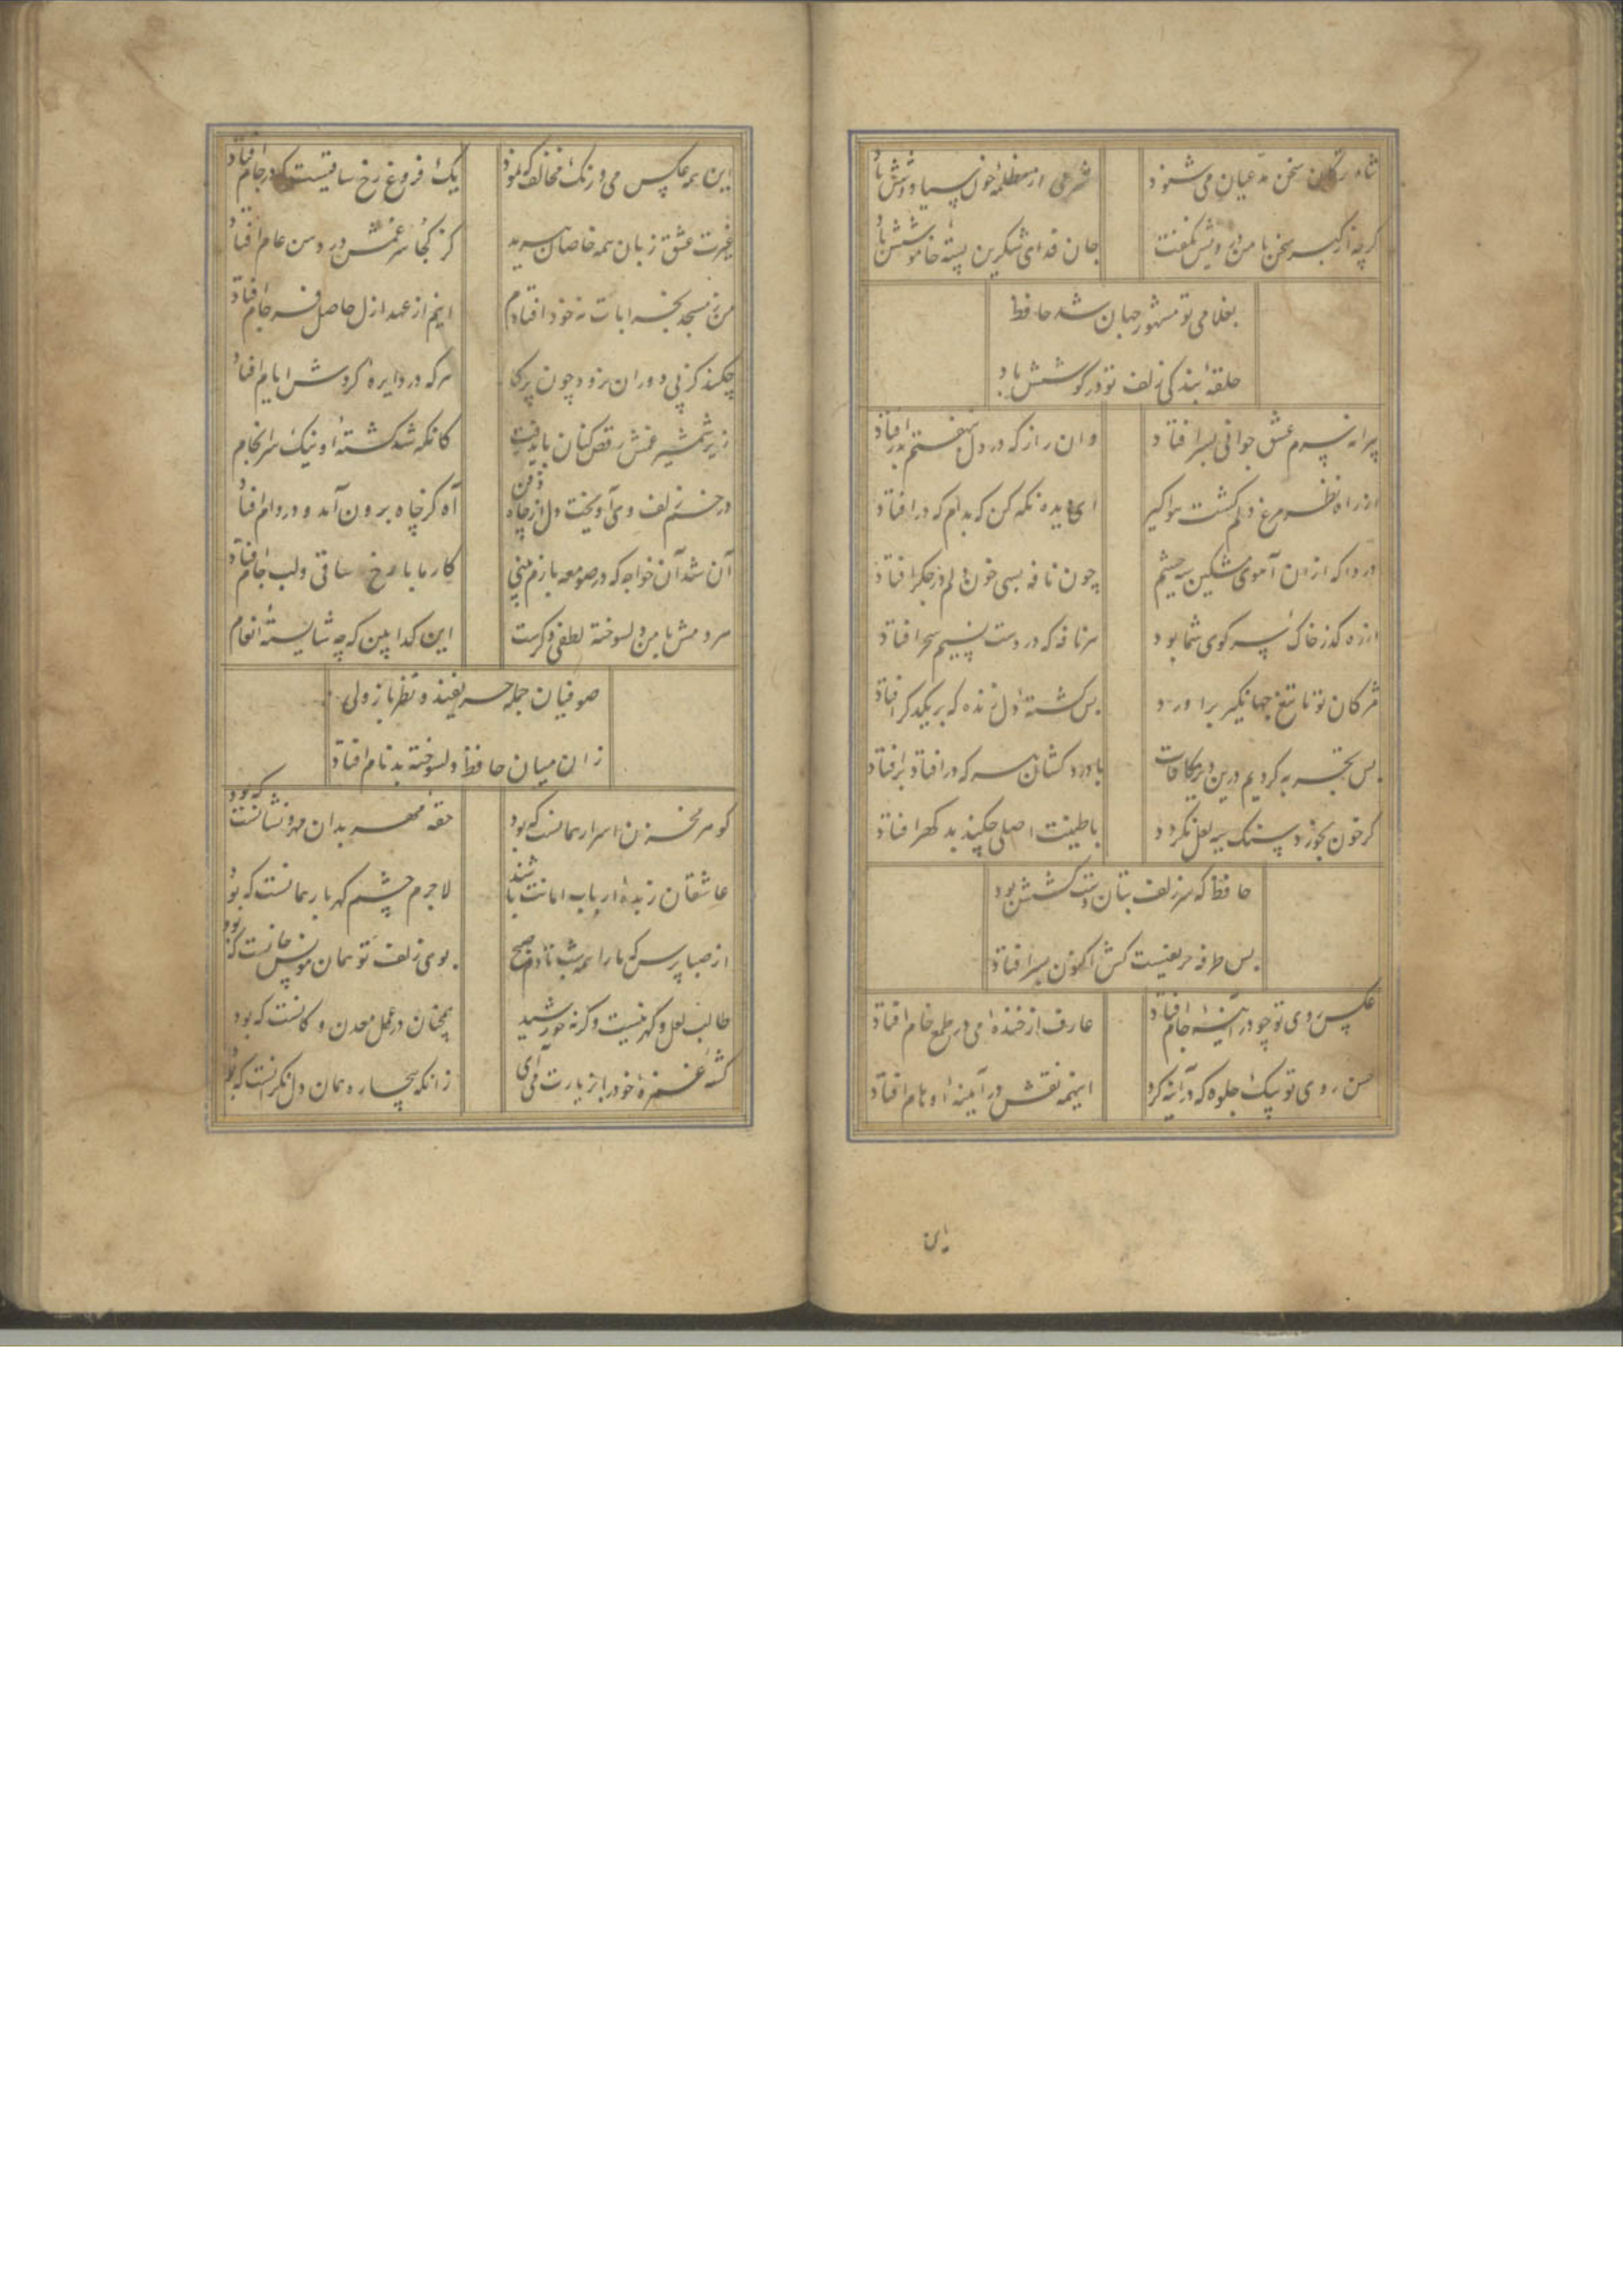 شاه ترکان سخن مدعیان می شنود شرمی از مظلمهٔ خون سیاووشش باد
کرچه از کبر سخن با من درویش نکفت جان فدای شکرین پستهٔ خاموشش باد
بغلامی تو مشهور جهان شد حافظ
حلقهٔ بندکی زلف تو در کوشش باد
پیرانه سرم عشق جوانی بسر افتاد وان راز که در دل بنهفتم بدر افتاد
از راه نظر مرغ دلم کشت هواکیر ای دیده نکه کن که بدام که در افتاد
دردا که ازان آهوی مشکین سیه چشم چون نافه بسی خون دلم در جکر افتاد
از ره کذر خاک سر کوی شما بود هر نافه که در دست نسیم سحر افتاد
مژکان تو تا تیغ جهانکیر براورد بس کشتهٔ دل زنده که بر یکدکر افتاد
بس تجربه کردیم درین دیر مکافات با درد کشان هر که در افتاد بر افتاد
کر خون بخورد سنک سیه لعل نکردد با طینت اصلی چکند بد کهر افتاد
حافظ که سر زلف بتان دست کشش بود
بس طرفه حریفیست کش اکنون بسر افتاد
عکس روی تو چو در آینهٔ جام افتاد عارف از خندهٔ می در طمع خام افتاد
حسن روی تو بیک جلوه که در آینه کرد اینهمه نقش در آیینهٔ اوهام افتاد
این همه عکس می و رنک مخالف که نمود یک فروغ رخ ساقیست که در جام افتاد
غیرت عشق زبان همه خاصان ببرید کز کجا سر غمش در دهن عام افتاد
من ز مسجد بخرابات نه خود افتادم اینم از عهد ازل حاصل فرجام افتاد
چکند کز پی دوران نرود چون پرکار هر که در دایرهٔ کردش ایام افتاد
زیر شمشیر غمش رقص کنان باید رفت کانکه شد کشتهٔ او نیک سرانجام
در خم زلف وی آویخت دل از چاه ذقن آه کز چاه برون آمد و در دام افتاد
آن شد آن خواجه که در صومعه بازم بینی کار ما با رخ ساقی ولب جام افتاد
هر دمش با من دلسوخته لطفی دکرست این کدا بین که چه شایستهٔ انعام
صوفیان جمله حریفند و نظرباز ولی
زان میان حافظ دلسوخته بدنام افتاد
کوهر مخزن اسرار همانست که بود حقهٔ مهر بدان مهر و نشانست که بود
عاشقان زبدهٔ ارباب امانت باشند لاجرم چشم کهربار همانست که بود
از صبا پرس که ما را همه شب تا دم صبح بوی زلف تو همان مونس جانست که بود
طالب لعل و کهر نیست وکرنه خورشید همچنان در عمل معدن و کانست که بود
کشتهٔ غمزهٔ خود را بزیارت می آی زانکه بیچاره همان دل نکرانست که بود